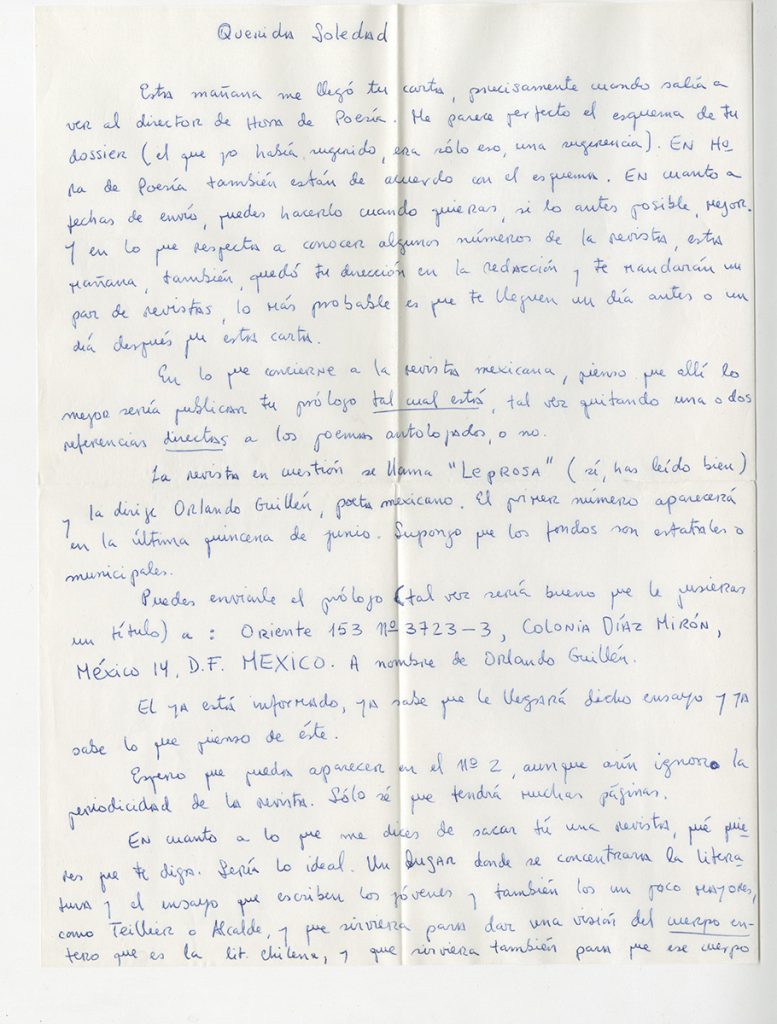 Querida Soledad
Esta mañana me llegó tu carta, precisamente cuando salía a
ver al director de Hora de Poesía. Me parece perfecto el esquema de tu
dossier (el que yo había sugerido, era sólo eso, una sugerencia). EN Ho
ra de Poesía también están de acuerdo con el esquema. EN cuanto a
fechas de envío, puedes hacerlo cuando quieras, si lo antes posible, mejor.
Y en lo que respecta a conocer algunos números de la revista, esta
mañana, también, quedó tu dirección en la redacción y te mandarán un
par de revistas, lo más probable es que te lleguen un día antes o un
día después que esta carta.
En lo que concierne a la revista mexicana, pienso que allí lo
mejor sería publicar tu prólogo tal cual está, tal vez quitando una o dos
referencias directas a los poemas antolojados, o no.
La revista en cuestión se llama "LEPROSA" (sí, has leído bien)
y la dirige Orlando Guillén, poeta mexicano. El primer número aparecerá
en la última quincena de junio. Supongo que los fondos son estatales o
municipales.
Puedes enviarle el prólogo (tal vez sería bueno que le pusieras
un título) a : Oriente 153 Nº 3723-3, COLONIA DÍAZ MIRÓN,
México 14, D.F. MEXICO. A nombre de Orlando Guillén.
El ya está informado, ya sabe que le llegará dicho ensayo y ya
sabe lo que pienso de éste.
Espero que pueda aparecer en el Nº 2, aunque aún ignoro la
periodicidad de la revista. Sólo sé que tendrá muchas páginas.
EN cuanto a lo que me dices de sacar tú una revista, qué quie-
res que te diga. Sería lo ideal. Un lugar donde se concentrara la litera-
tura y el ensayo que escriben los jóvenes y también los un poco mayores,
como Teillier o Alcalde, y que sirviera para dar una visión del cuerpo en-
tero que es la lit. chilena, y que sirviera también para que ese cuerpo